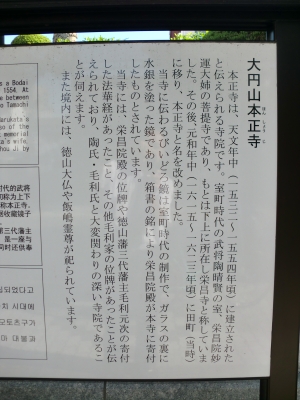 大円山本正寺
ほんしょうじ
本正寺は、天文年中(一五三二~一五五四年頃)に建立された
と伝えられる寺院です。室町時代の武将陶晴賢の室、栄昌院妙
運大姉の菩提寺であり、もとは下上に所在し栄昌寺と称していま
した。その後、元和年中(一六一五~一六二三年頃)に田町(当時)
に移り、本正寺と名を改めました。
当寺に伝わるびいどろ鏡は室町時代の制作で、ガラスの裏に
水銀を塗った鏡であり、箱書の銘により栄昌院殿が本寺に寄付
したものとされています。
当寺には、栄昌院殿の位牌や徳山藩三代藩主毛利元次の寄付
した法華経があったこと、その他毛利家の位牌があったことが伝
えられており、陶氏・毛利氏と大変関わりの深い寺院であるこ
とが伺えます。
また境内には、徳山大仏や飯嶋霊尊が祀られています。
s a Bodai
1554. At
e between
o Tamachi
Harukata a
so of the
t memorial
ta's wife.
hou Ji by
时代的武将
和称力上下
称本正寺。
据收藏镜子
第三代藩主
是一座与
同时还供奉